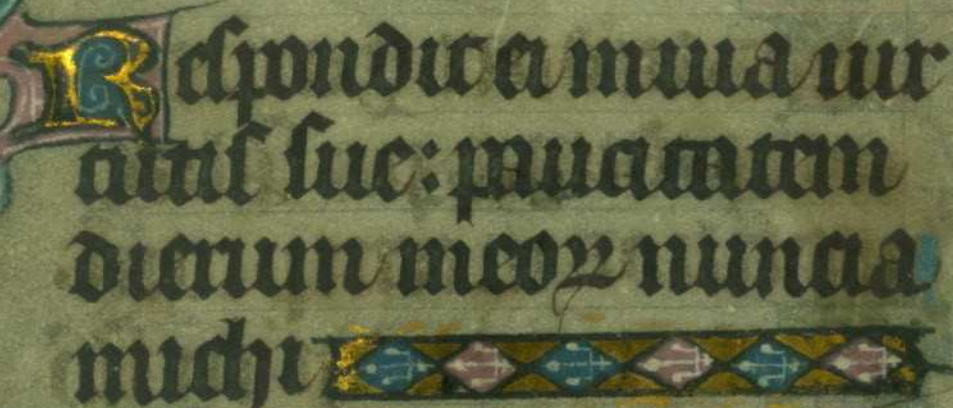 Respondit ei in uia uir
tutis sue: paucitatem
dierum meoꝝ nuncia
michi